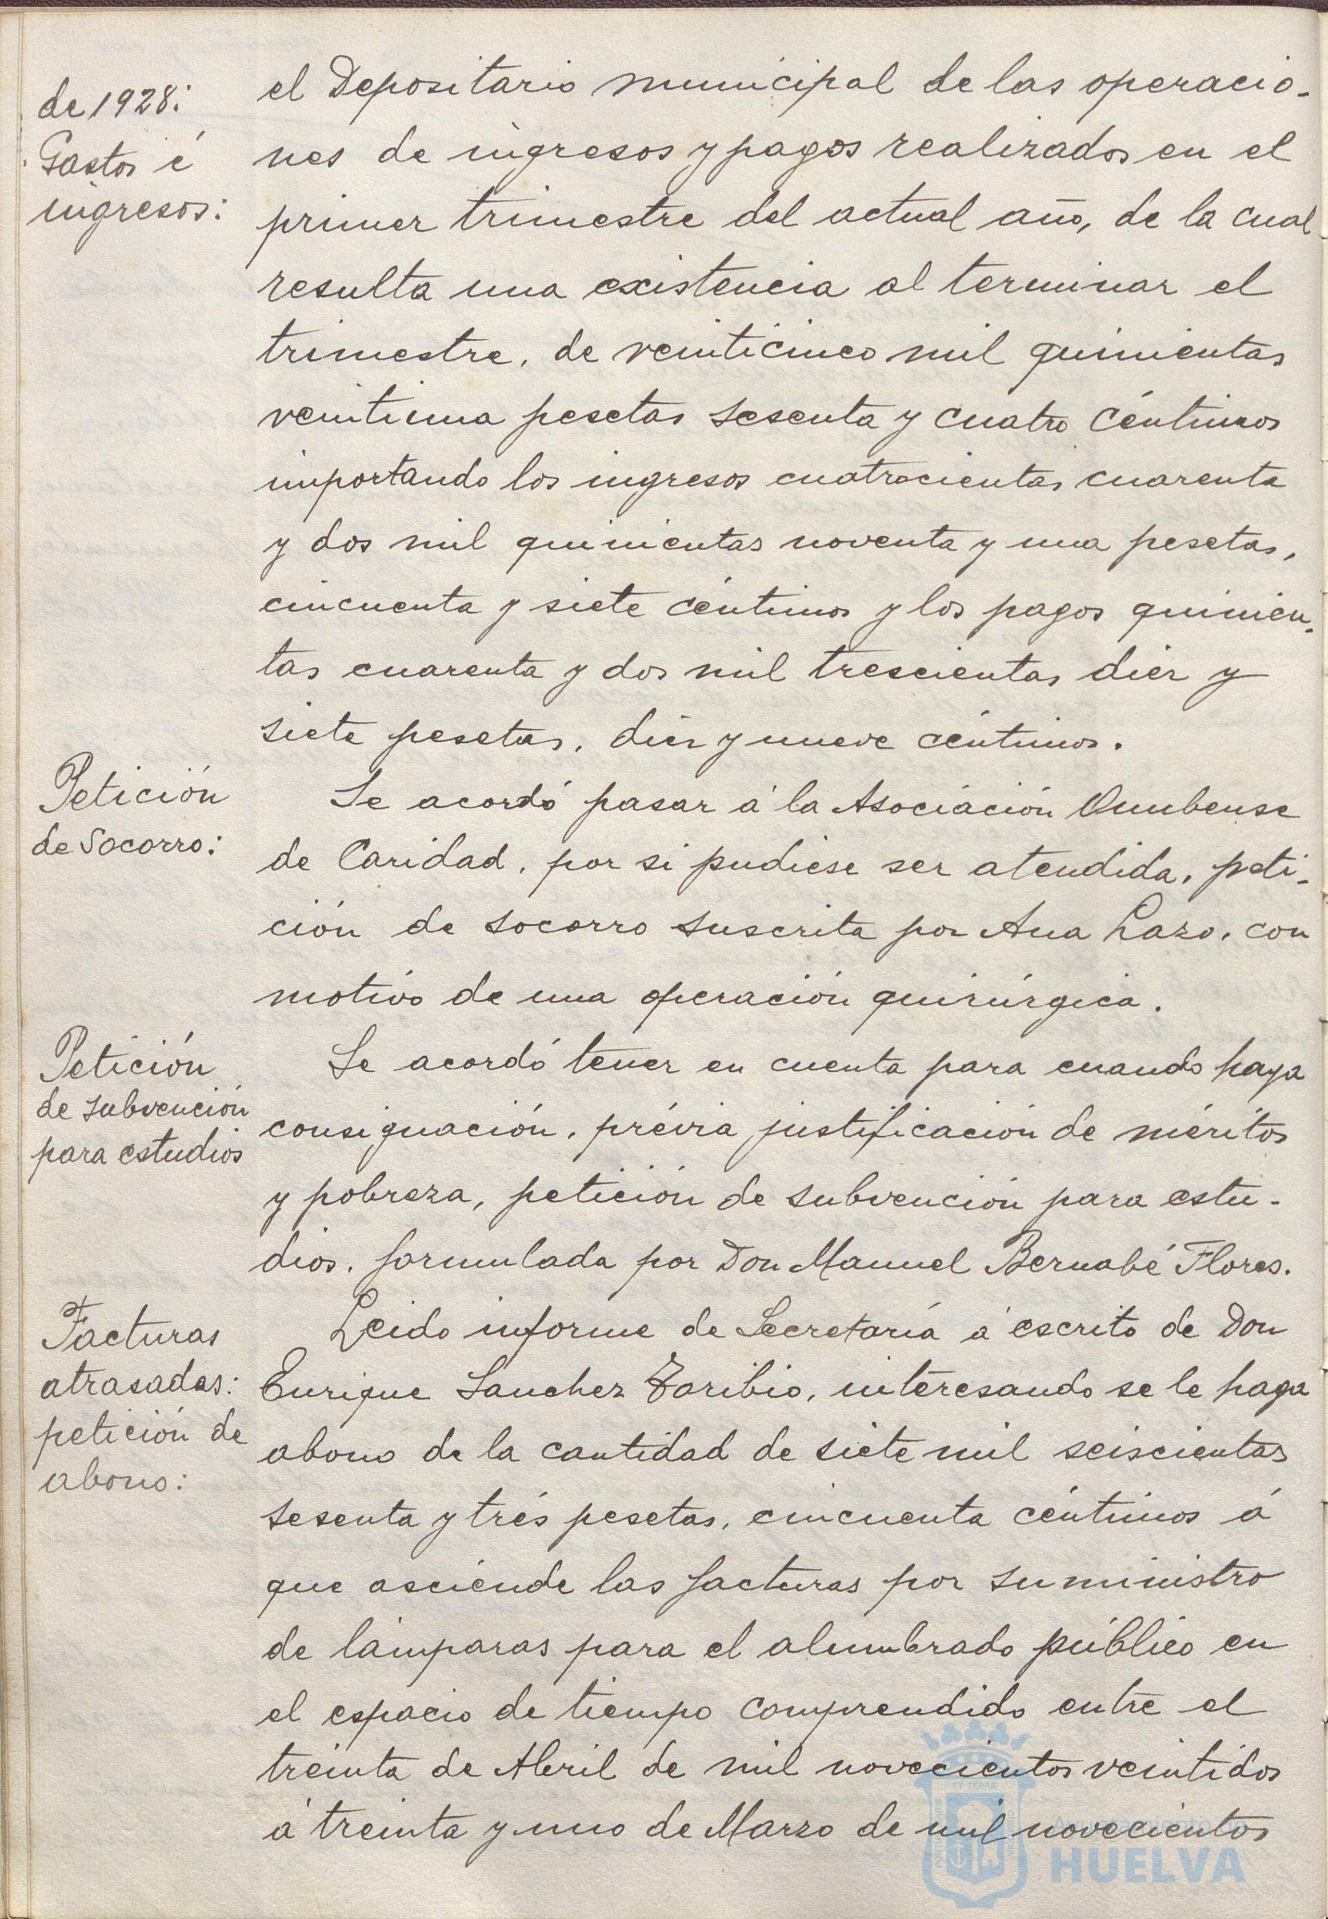 de 1928:
Gastos é
ingresos:
el Depositario municipal de las operacio-
nes de ingresos y pagos realizados en el
primer trimestre del actual año, de la cual
resulta una existencia al terminar el
trimestre, de veinticinco mil quinientas
veintiuna pesetas sesenta y cuatro céntimos
importando los ingresos cuatrocientas cuarenta
y dos mil quinientas noventa y una pesetas,
cincuenta y siete céntimos y los pagos quinien-
tas cuarenta y dos mil trescientas diez y
siete pesetas, diez y nueve céntimos.
Petición
de Socorro:
Se acordó pasar á la Asociación Onubense
de Caridad, por si pudiese ser atendida, peti-
ción de socorro suscrita por Ana Lazo, con
motivo de una operación quirúrgica.
Petición
de subvención
para estudios
Se acordó tener en cuenta para cuando haya
consignación, prévia justificación de méritos
y pobreza, petición de subvención para estu-
dios, formulada por Don Manuel Bernabé Flores.
Facturas
atrasadas:
petición de
abono:
Leido informe de Secretaría á escrito de Don
Enrique Sanchez Toribio, interesando se le haga
abono de la cantidad de siete mil seiscientas
sesenta y trés pesetas, cincuenta céntimos á
que asciende las facturas por suministro
de lámparas para el alumbrado público en
el espacio de tiempo comprendido entre el
treinta de Abril de mil novecientos veintidos
á treinta y uno de Marzo de mil novecientos
HUELVA